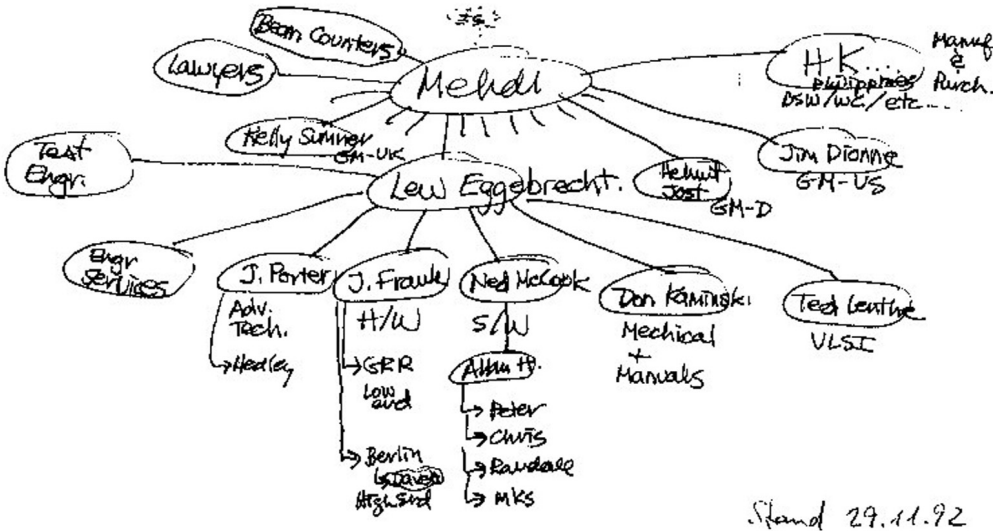 Bean Counters
Lawyers
Mehdi
HK....
Philippines
DSW/WC/etc....
Manuf
&
Purch.
Kelly Sumner
GM-UK
Helmut
Jost
GM-D
Jim Dionne
GM-US
Test
Engr.
Lew Eggebrecht.
Engr
Services
J. Porter
Adv.
Tech.
Hedley
J. Frank
H/W
GRR
Low
end
Berlin
Dave
High End
Ned McCook
S/W
Allan H.
Peter
Chris
Randall
MKS
Don Kaminski
Mechical
+
Manuals
Ted Lenthe
VLSI
Stand 29.11.92